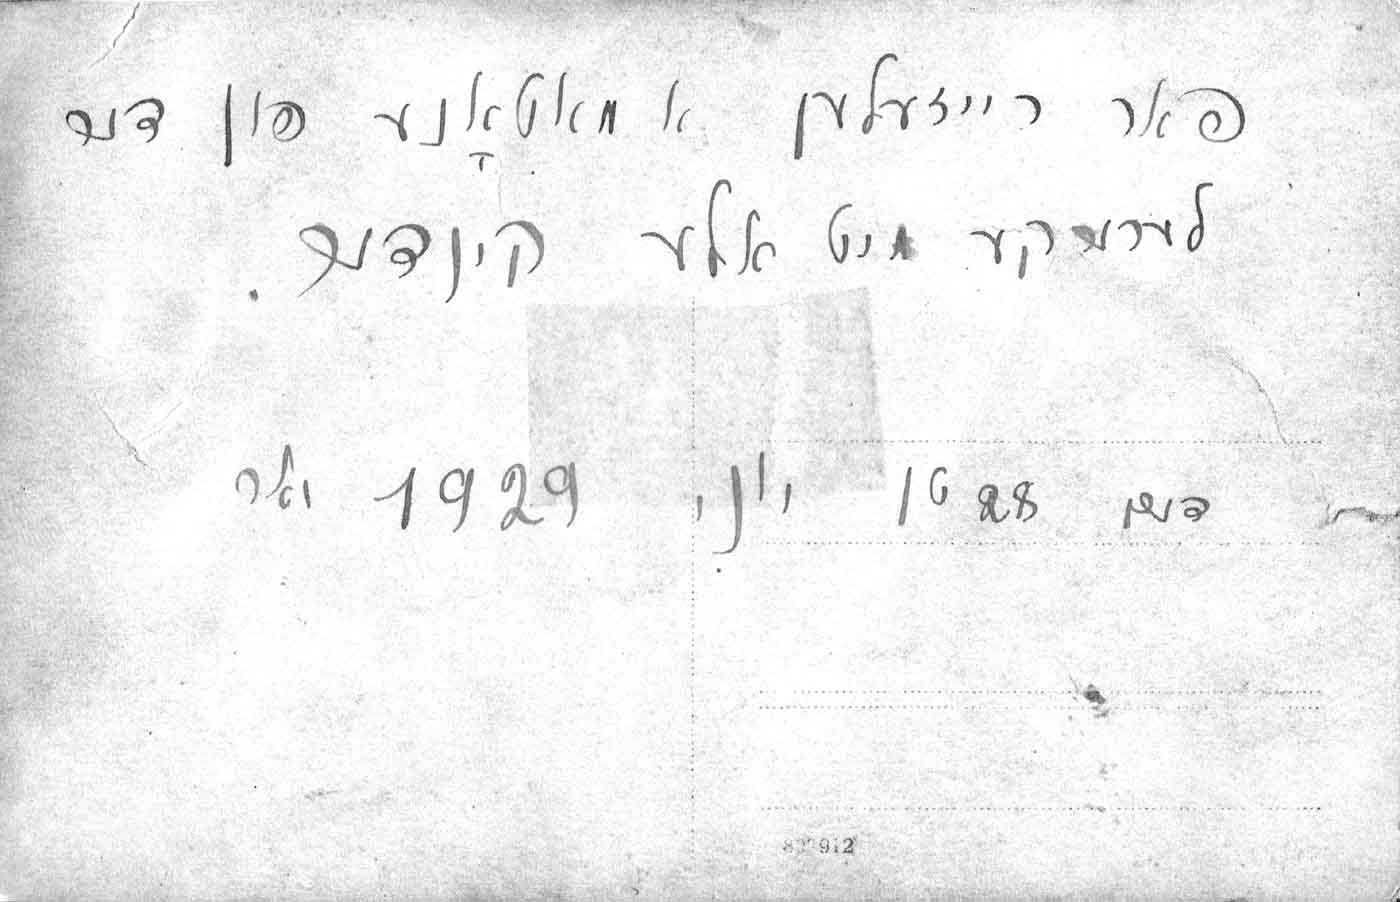 פאר רייזעלען א מאטאָנע פון דער
לערערקע מיט אלע קינדער.
דעם 28טן יוני 1929 יאר